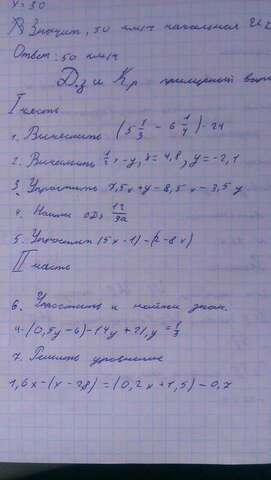 x = 30
Значит, 50 км/ч начальная
Ответ: 50 км/ч
Д.з и К.р
I часть
1. Вычислить (5 1/3 - 6 1/4) · 24
2. Вычислить y = -2,1
3. Упростить 7,5x + y - 8,5x - 3,5y
4. Найти ОДЗ 12/3a
5. Упростить (5x - 1) - (2 - 8x)
II часть
6. Упростить и найти знач.
4 · (0,5y - 6) - 14y + 21, y = 1/3
7. Решить уравнение
1,6x - (x - 2,8) = (0,2x + 1,5) - 0,7